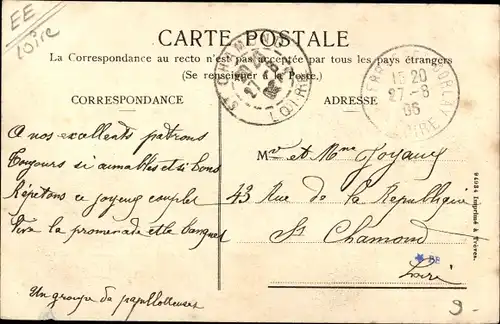 EE
Loire
CARTE POSTALE
La Correspondance au recto n'est pas acceptée par tous les pays étrangers
(Se renseigner à la Poste.)
CORRESPONDANCE
ADRESSE
ST CHAMOND
LOIRE
15 20
27 -8
06
LOIRE
A nos excellents patrons
Toujours si aimables et si bons
Répétons ce joyeux couplet
Vive la promenade et le
Un groupe de papillotteuses
Mr et Mme Joyaux
43 Rue de la République
St Chamond
Loire
BB
94924 Imprimé à
9-